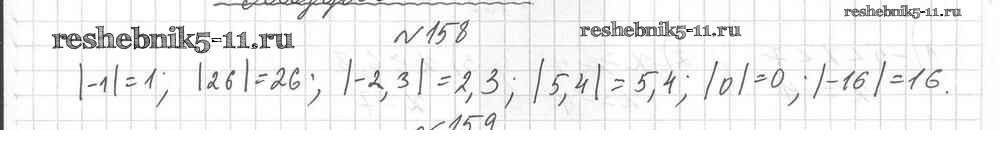 reshebnik5-11.ru
№158
reshebnik5-11.ru
reshebnik5-11.ru
|-1|=1; |26|=26; |-2,3|=2,3; |5,4|=5,4; |0|=0; |-16|=16.
№159